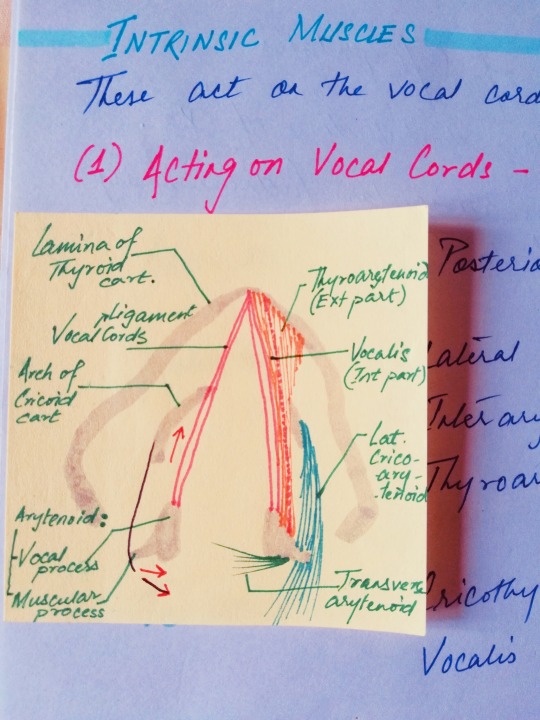 INTRINSIC MUSCLES
These act on the vocal cord
(1) Acting on Vocal Cords -
Lamina of
Thyroid
cart.
Ligament
Vocal Cords
Arch of
Cricoid
cart
Arytenoid:
Vocal
process
Muscular
process
Thyroarytenoid
(Ext part)
Vocalis
(Int part)
Lat.
Crico-
ary-
-tenoid
Transverse
arytenoid
Posterio
Lateral
Interary
Thyroar
Cricothy
Vocalis